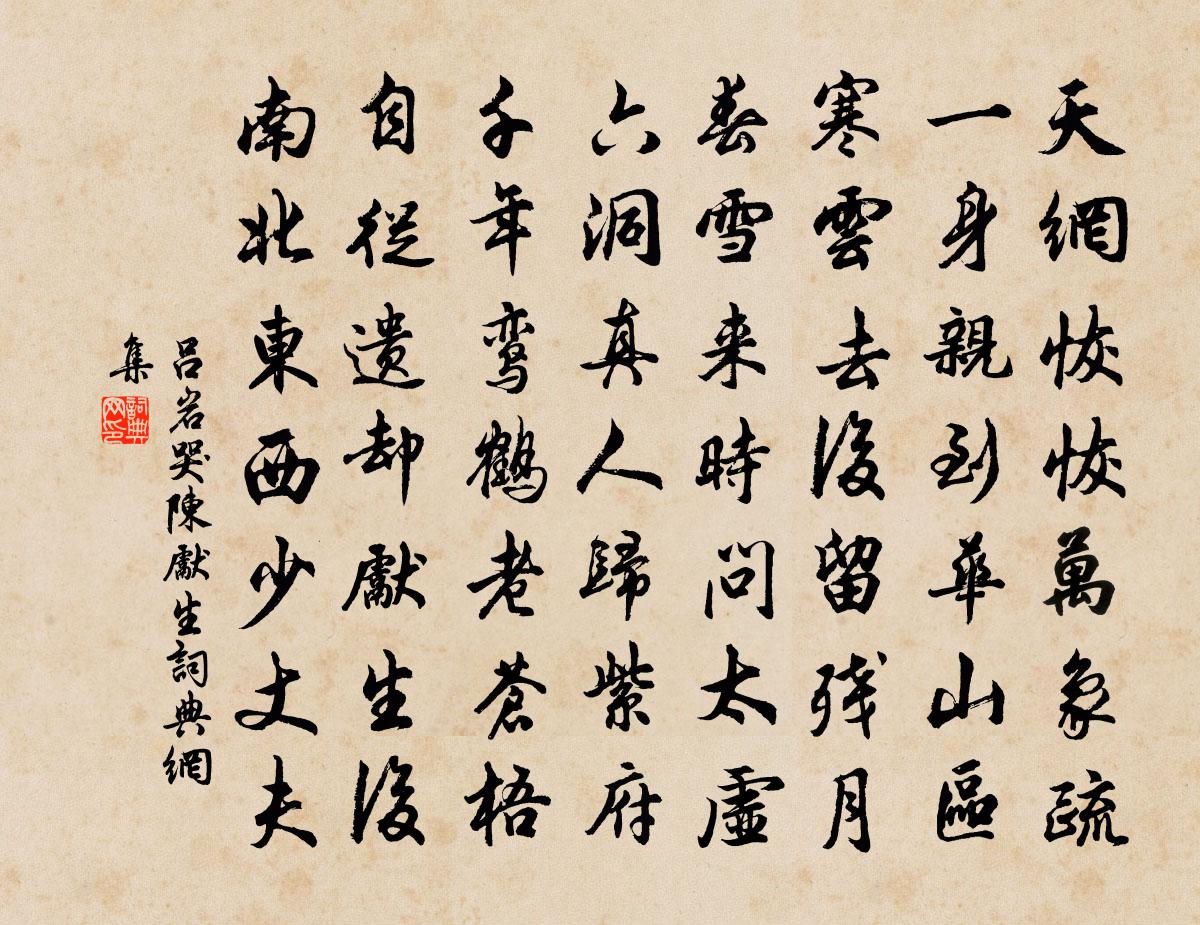 天網恢恢萬象疏
一身親到華山區
寒雲去後留残月
春雪来時問太虛
六洞真人歸紫府
千年鸾鶴老蒼梧
自從遺却獻生後
南北東西少丈夫
吕岩哭陳獻生詞典網
集
詞典
网印